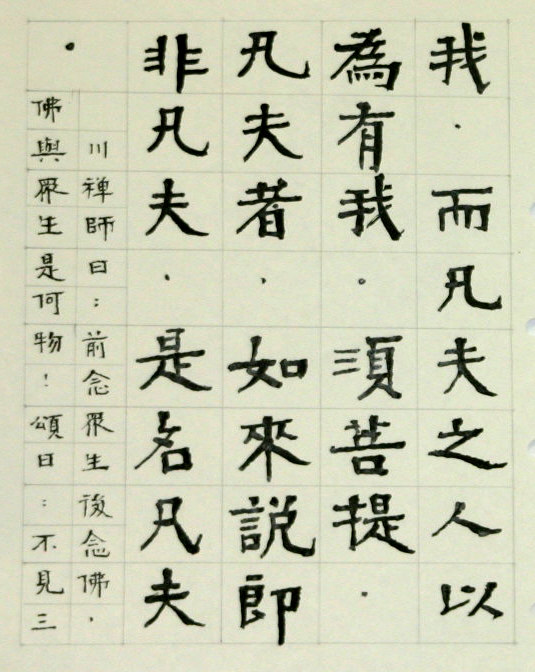 我．而凡夫之人以
為有我。須菩提．
凡夫者．如來說即
非凡夫．是名凡夫
．
川禪師曰：前念眾生後念佛，
佛與眾生是何物！頌曰：不見三